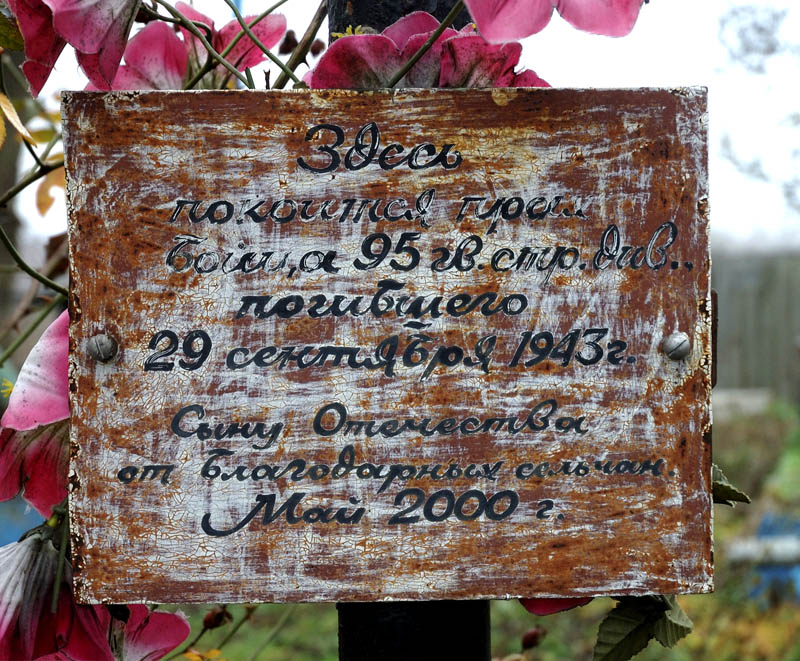 Здесь
покоится прах
бойца 95 гв. стр. див.,
погибшего
29 сентября 1943 г.
Сыну Отечества
от благодарных сельчан.
Май 2000 г.